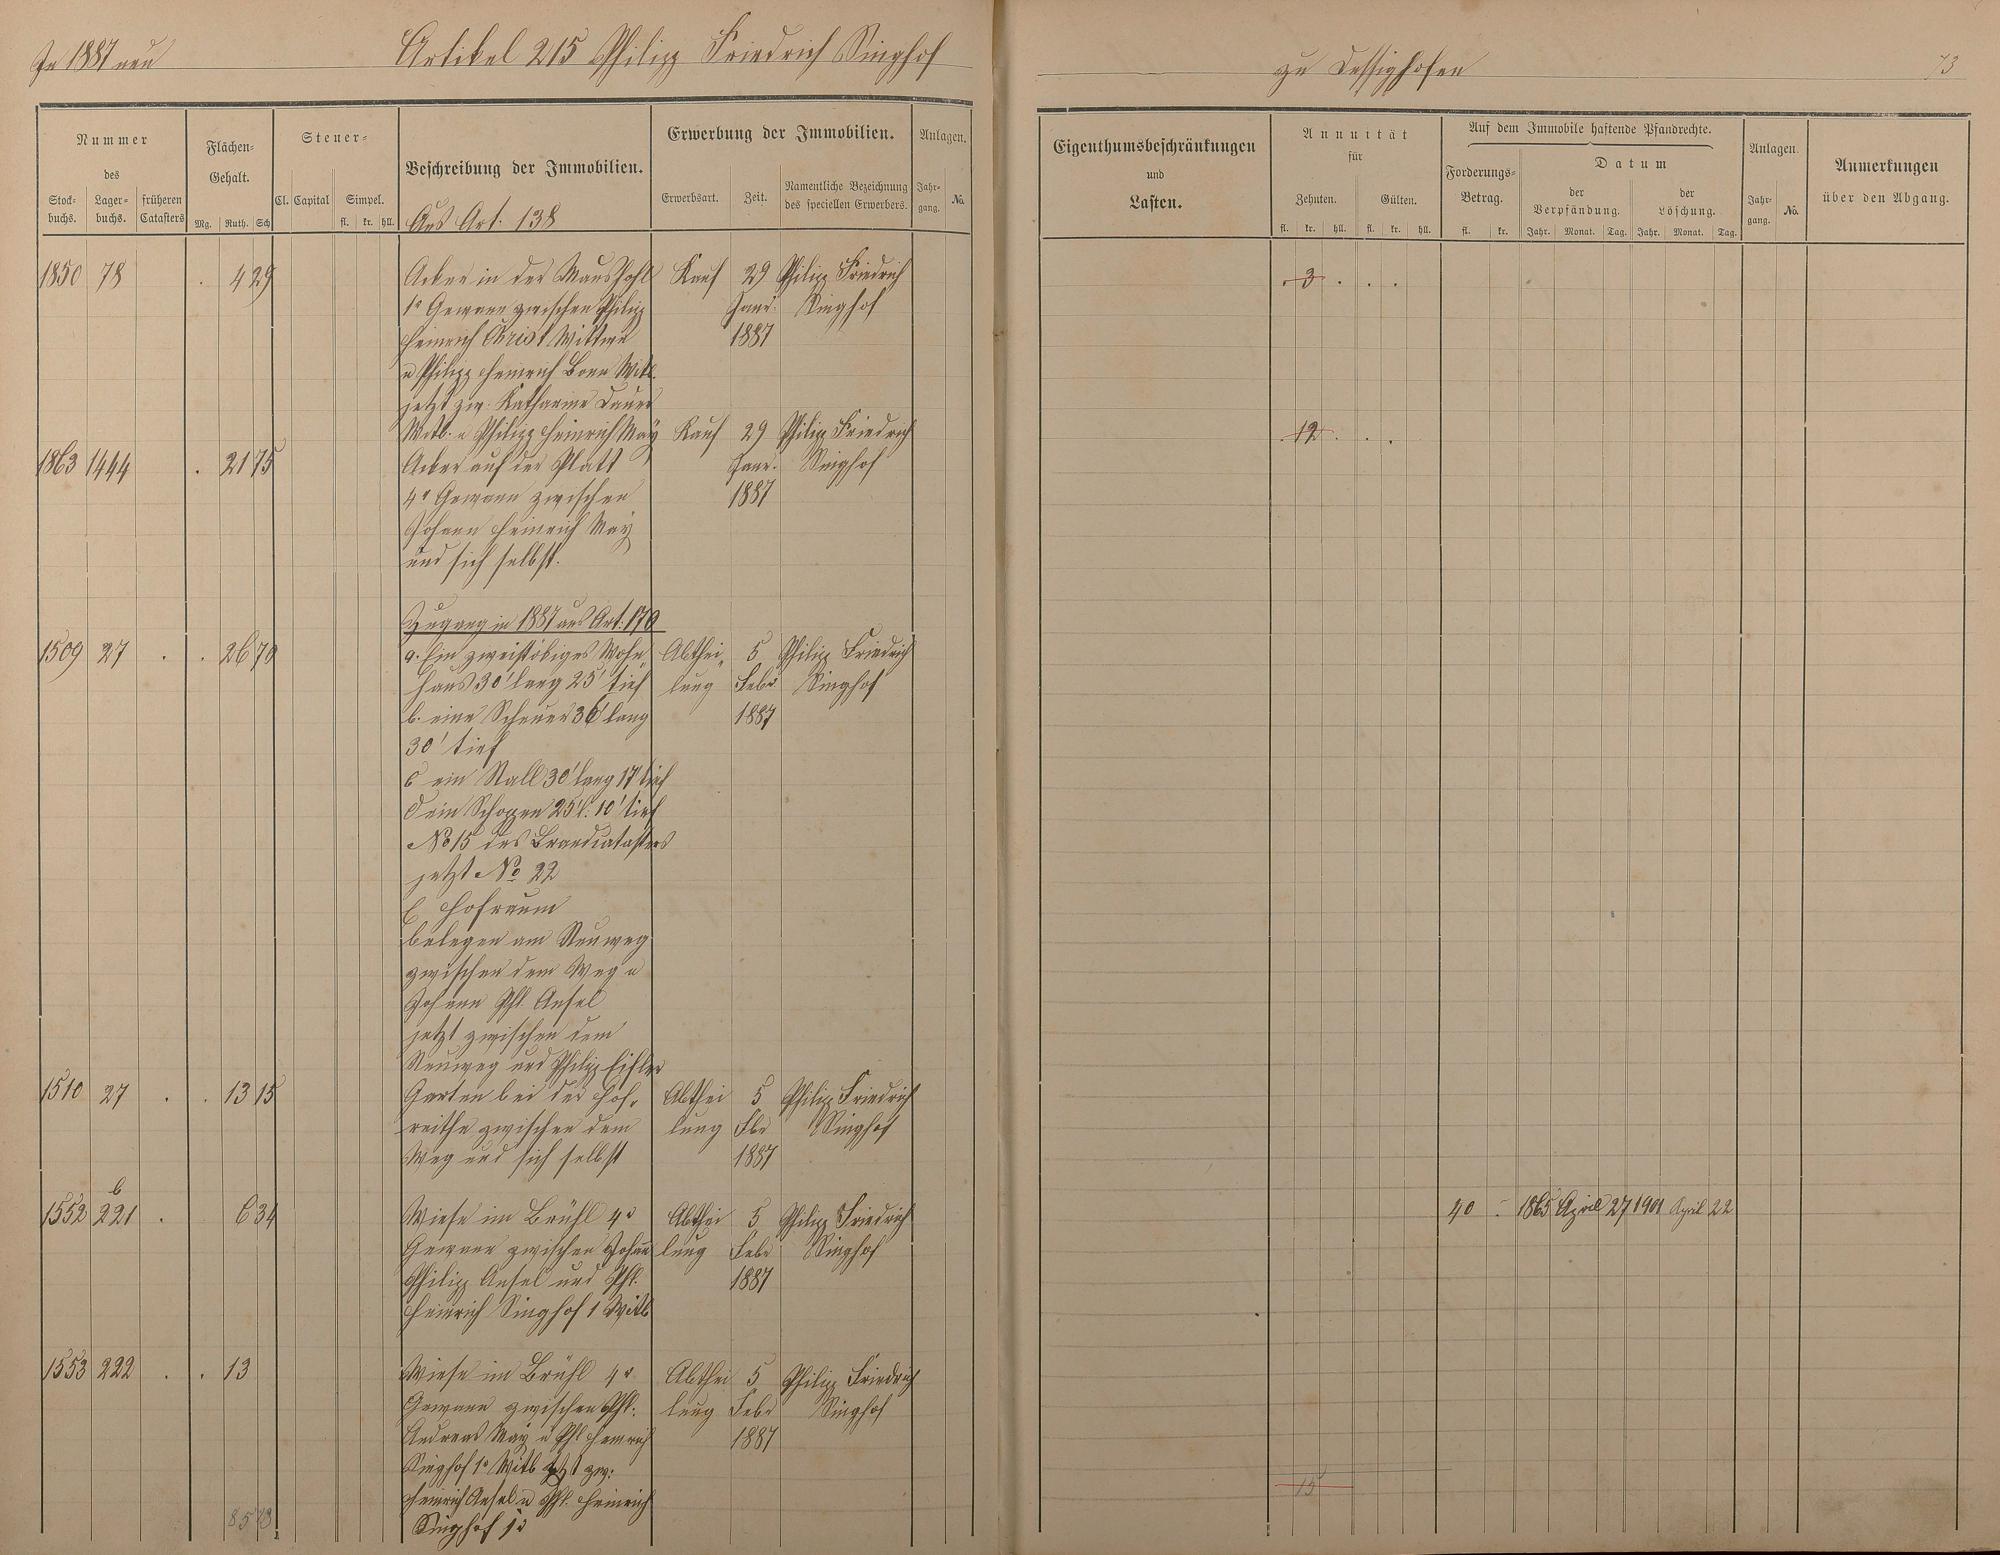 In 1887 neu
Artikel 215 Philipp Friedrich Singhof
zu Dessighofen
73
Nummer
des
Stock-
buchs.
Lager-
buchs.
früheren
Catasters
Flächen-
Gehalt.
Mg. Ruth. Sch
Steuer-
Cl. Capital Simpel.
fl. kr. hll.
Beschreibung der Immobilien.
Aus Art. 138
Erwerbung der Immobilien.
Erwerbsart. Zeit. Namentliche Bezeichnung
des speciellen Erwerbers.
Anlagen.
Jahr-
gang. No.
Eigenthumsbeschränkungen
und
Lasten.
Annuität
für
Zehnten. Gülten.
fl. kr. hll. fl. kr. hll.
Auf dem Immobile haftende Pfandrechte.
Forderungs-
Betrag.
fl. kr.
Datum
der
Verpfändung.
der
Löschung.
Jahr. Monat. Tag. Jahr. Monat. Tag.
Anlagen.
Jahr-
gang. No.
Anmerkungen
über den Abgang.
1850 78 . 4 29 Acker in der Maushohl Kauf 29 Philipp Friedrich . 3 . . .
1r Gewann zwischen Philipp Janr. Singhof
Heinrich Christ Wittwe 1887
u Philipp Heinrich Born Witb.
jetzt zw. Katharine Dauer
Witb. u Philipp Heinrich May Kauf 29 Philipp Friedrich . 12 . . .
1863 1444 . 21 75 Acker auf der Platt Janr. Singhof
4r Gewann zwischen 1887
Johann Heinrich May
und sich selbst.
Zugang in 1887 aus Art. 170
1509 27 . . 26 70 a. Ein zweistöbiges Wohn- Abthei- 5 Philipp Friedrich
haus 30' lang 25' tief lung Febr Singhof
b. eine Scheuer 36' lang 1887
30' tief
c ein Stall 30' lang 17' tief
d ein Schoppen 25' l. 10' tief
No 15 des Brandcatasters
jetzt No 22
e Hofraum
belegen am Neuweg
zwischen dem Weg u
Johann Phl. Ansel
jetzt zwischen dem
Neuweg und Philipp
1510 27 . . 13 15 Garten bei der Hof- Abthei 5 Philipp Friedrich
reithe zwischen dem lung Fbr Singhof
Weg und sich selbst 1887
b
1552 221 . 6 34 Wiese im Brühl 4r Abthei 5 Philipp Friedrich 40 - 1865 April 27 1901 April 22
Gewann zwischen Johann lung Febr Singhof
Philipp Ansel und Phl. 1887
Heinrich Singhof 1 Witb
1553 222 . . 13 Wiese im Brühl 4r Abthei 5 Philipp Friedrich
Gewann zwischen Phl. lung Febr Singhof
Andreas May u Phl Heinrich 1887
Singhof 1r Witb jetzt zw.
Heinrich Ansel u Phl. Heinrich
Singhof 1r
15